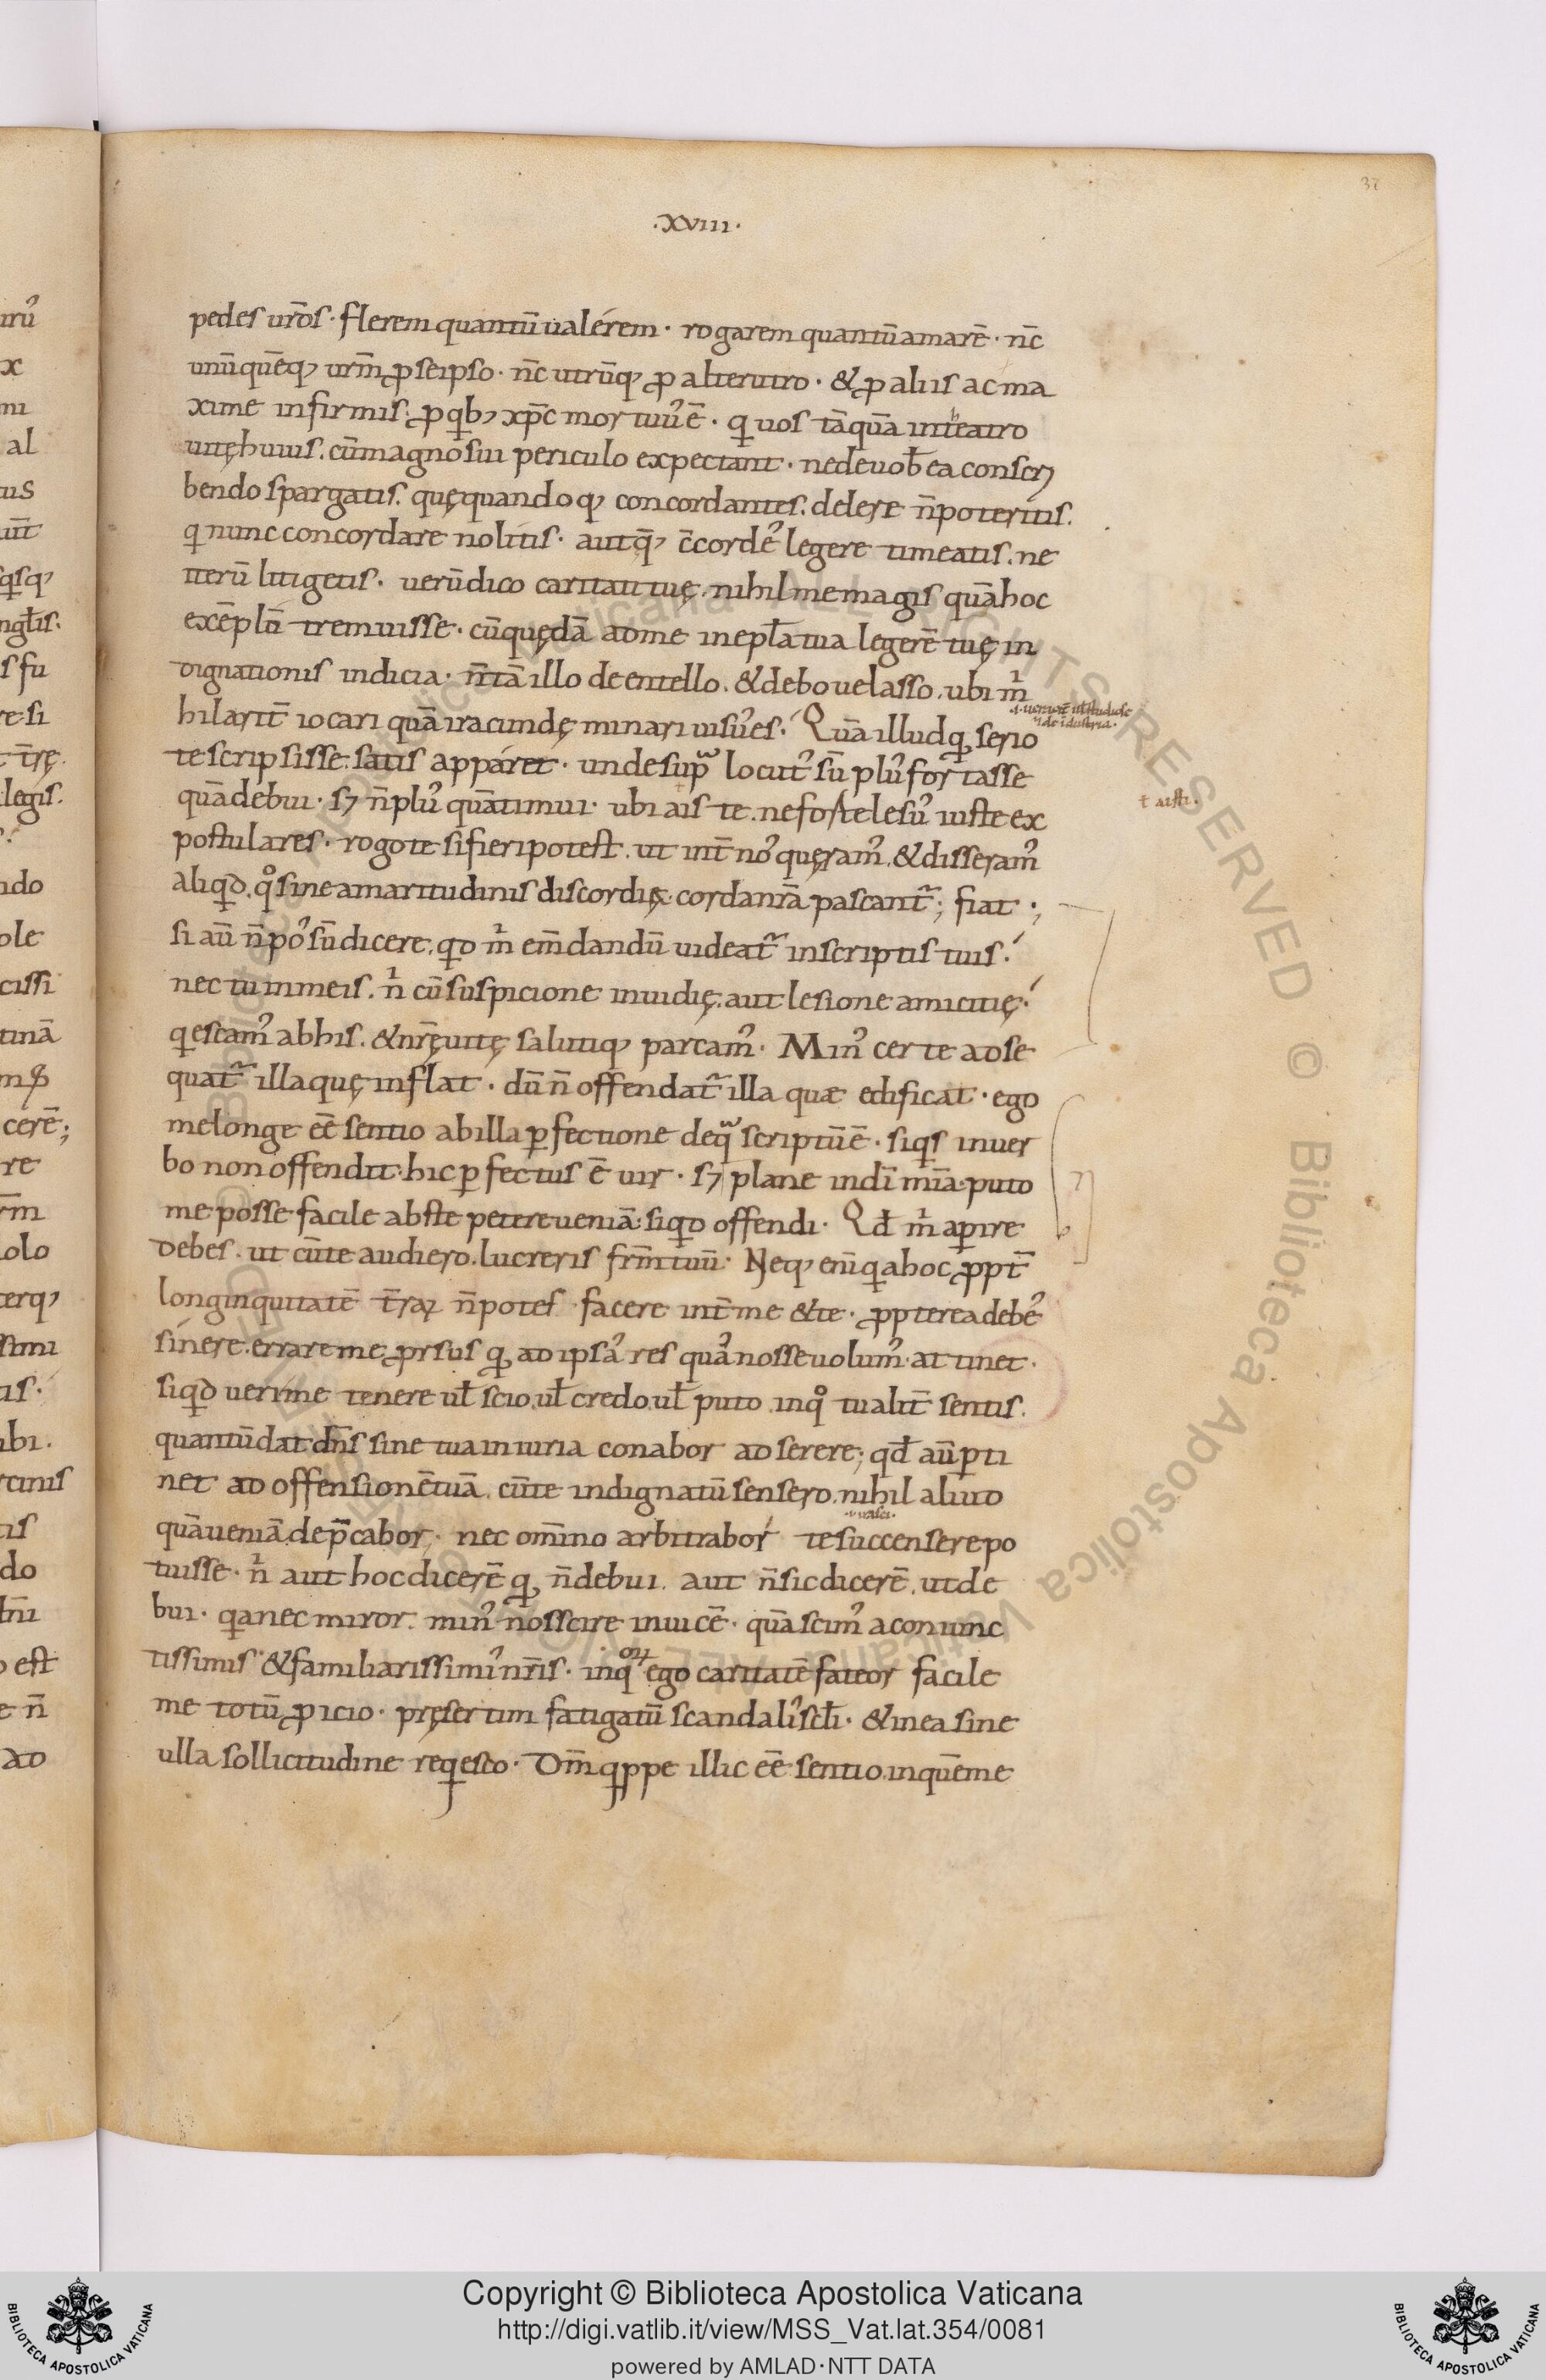 ·xviii·
37
pedes ur̄os· flerem quantū ualérem· rogarem quantū amarē· nc̄
unūquēq; urm̄ p seipso· nc̄ utrūq; p alterutro· & p aliis ac ma
xime infirmis· p qb; xpc̄ mortuus ē· qi uos tāquā in teatro
uitę huius· cū magno sui periculo expectant· ne de uob̄ ea conscri
bendo spargatis· quę quandoq; concordantes· delere n̄ poteritis·
qi nunc concordare nolitis· aut q̄; c̄cordes legere timeatis· ne
iterū litigetis· uerū dico caritati tuę· nihil me magis quā hoc
exēplū tremuisse· cū quędā ad me in epl̄a tua legerē tuę in
dignationis indicia· n̄ tā illo de entello· & de boue lasso· ubi m̄i
hilarit̄ iocari quā iracundę minari uisus es· Quā illud qd serio
te scripsisse satis appáret· unde supra locutus sū plus fortasse
quā debui· s; n̄ plus quā timui· ubi ais te· ne forte lesus iuste ex
ł aisti·
postulares· rogo te si fieri potest· ut int̄ nos queramus· & disseramus
aliqd· qo sine amaritudinis discordię· corda nr̄a pascant̄; fiat·;
si aū n̄ possū dicere· qd m̄i em̄dandū uideat̄ in scriptis tuis·
nec tu in meis· n̄i cū suspicione inuidię· aut lesione amicitię·
qiescamus ab his· & nr̄ę uitę salutiq; parcamus· Minus certe adse
quat̄ illa quę inflat· dū n̄ offendat̄ illa quæ edificat· ego
me longe eē sentio ab illa pfectione de qua scriptū ē· siqis in uer
bo non offendit· hic pfectus ē uir· s; plane in dī mīa puto
me posse facile abs te petere ueniā· siqd offendi· Qd̄ m̄i apire
debes· ut cū te audiero· lucreris frm̄ tuū· Neq; eni qia hoc ppt̄
longinquitatē t̄rar n̄ potes facere int̄ me & te· ppterea debes
sínere errare me· prsus qd ad ipsas res quas nosse uolumus attinet·
siqd ueri me tenere ul̄ scio· ul̄ credo· ul̄ puto· in qo tu alit̄ sentis·
quantū dat dn̄s sine tua iniuria conabor adserere; qd̄ aū pti
net ad offensionē tuā· cū te indignatū sensero· nihil aliud
quā ueniā depcabor· nec om̄ino arbitrabor te succensere po
tuisse· n̄i aut hoc dicerē qd n̄ debui· aut n̄ sic dicerē· ut de
bui· qia nec miror· minus nos scire inuicē· quā scimus a coniunc
tissimis & familiarissimis nr̄is· in qo ego caritatē fateor facile
me totū p icio· pręsertim fatigatū scandalis scl̄i· & in ea sine
ulla sollicitudine reqiesco· Dm̄ qippe illic eē sentio· in quē me
Copyright © Biblioteca Apostolica Vaticana
http://digi.vatlib.it/view/MSS_Vat.lat.354/0081
powered by AMLAD·NTT DATA
BIBLIOTECA APOSTOLICA VATICANA
BIBLIOTECA APOSTOLICA VATICANA